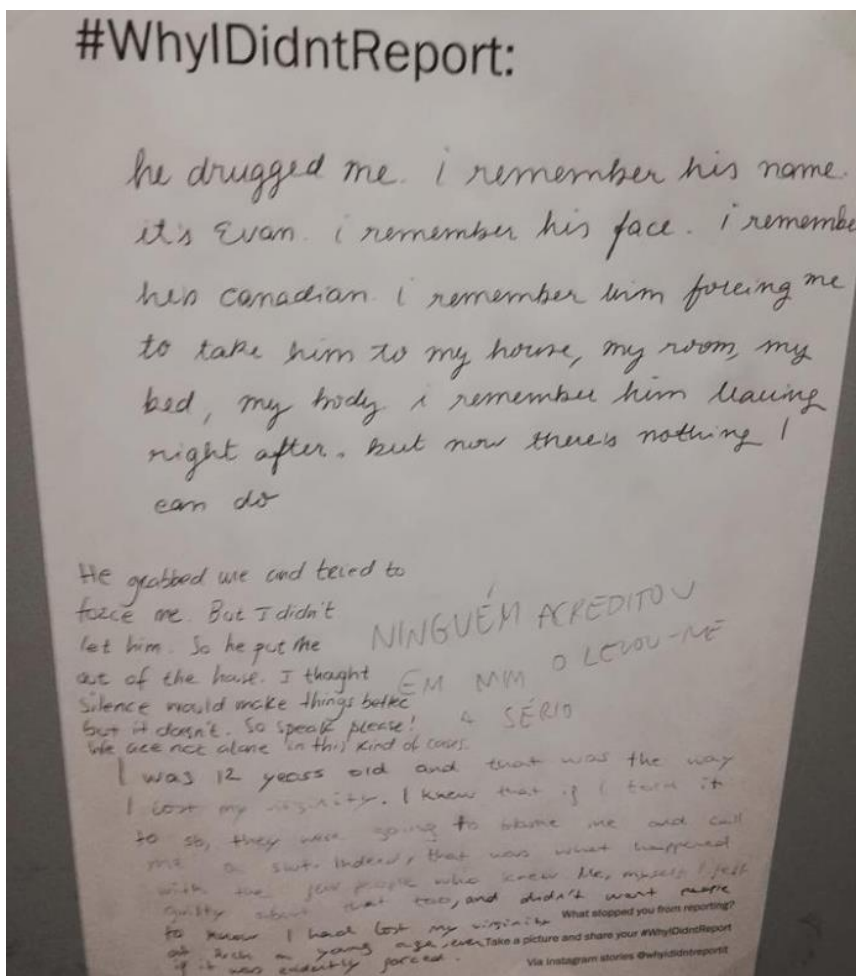 #WhyIDidntReport:
he drugged me. i remember his name.
it's Evan. i remember his face. i remembe
he's canadian. i remember him forcing me
to take him to my house, my room, my
bed, my body. i remember him leaving
right after. but now there's nothing I
can do
He grabbed me and tried to
force me. But I didn't
let him. So he put me
out of the house. I thaught
silence would make things better
but it doesn't. So speak please!
We are not alone in this kind of cases.
NINGUÉM ACREDITOU
EM MIM O LEVOU-ME
A SÉRIO
I was 12 years old and that was the way
I lost my virginity. I knew that if I it
to sb, they were going to blame me and call
me a slut. Indeed, that was what happened
with the few people who knew. Me, myself I felt
guilty about that too, and didn't want people
to know I had lost my virginity
at such a young age, even
if it was evidently forced.
What stopped you from reporting?
Take a picture and share your #WhyIDidntReport
Via Instagram stories @whyididntreportit